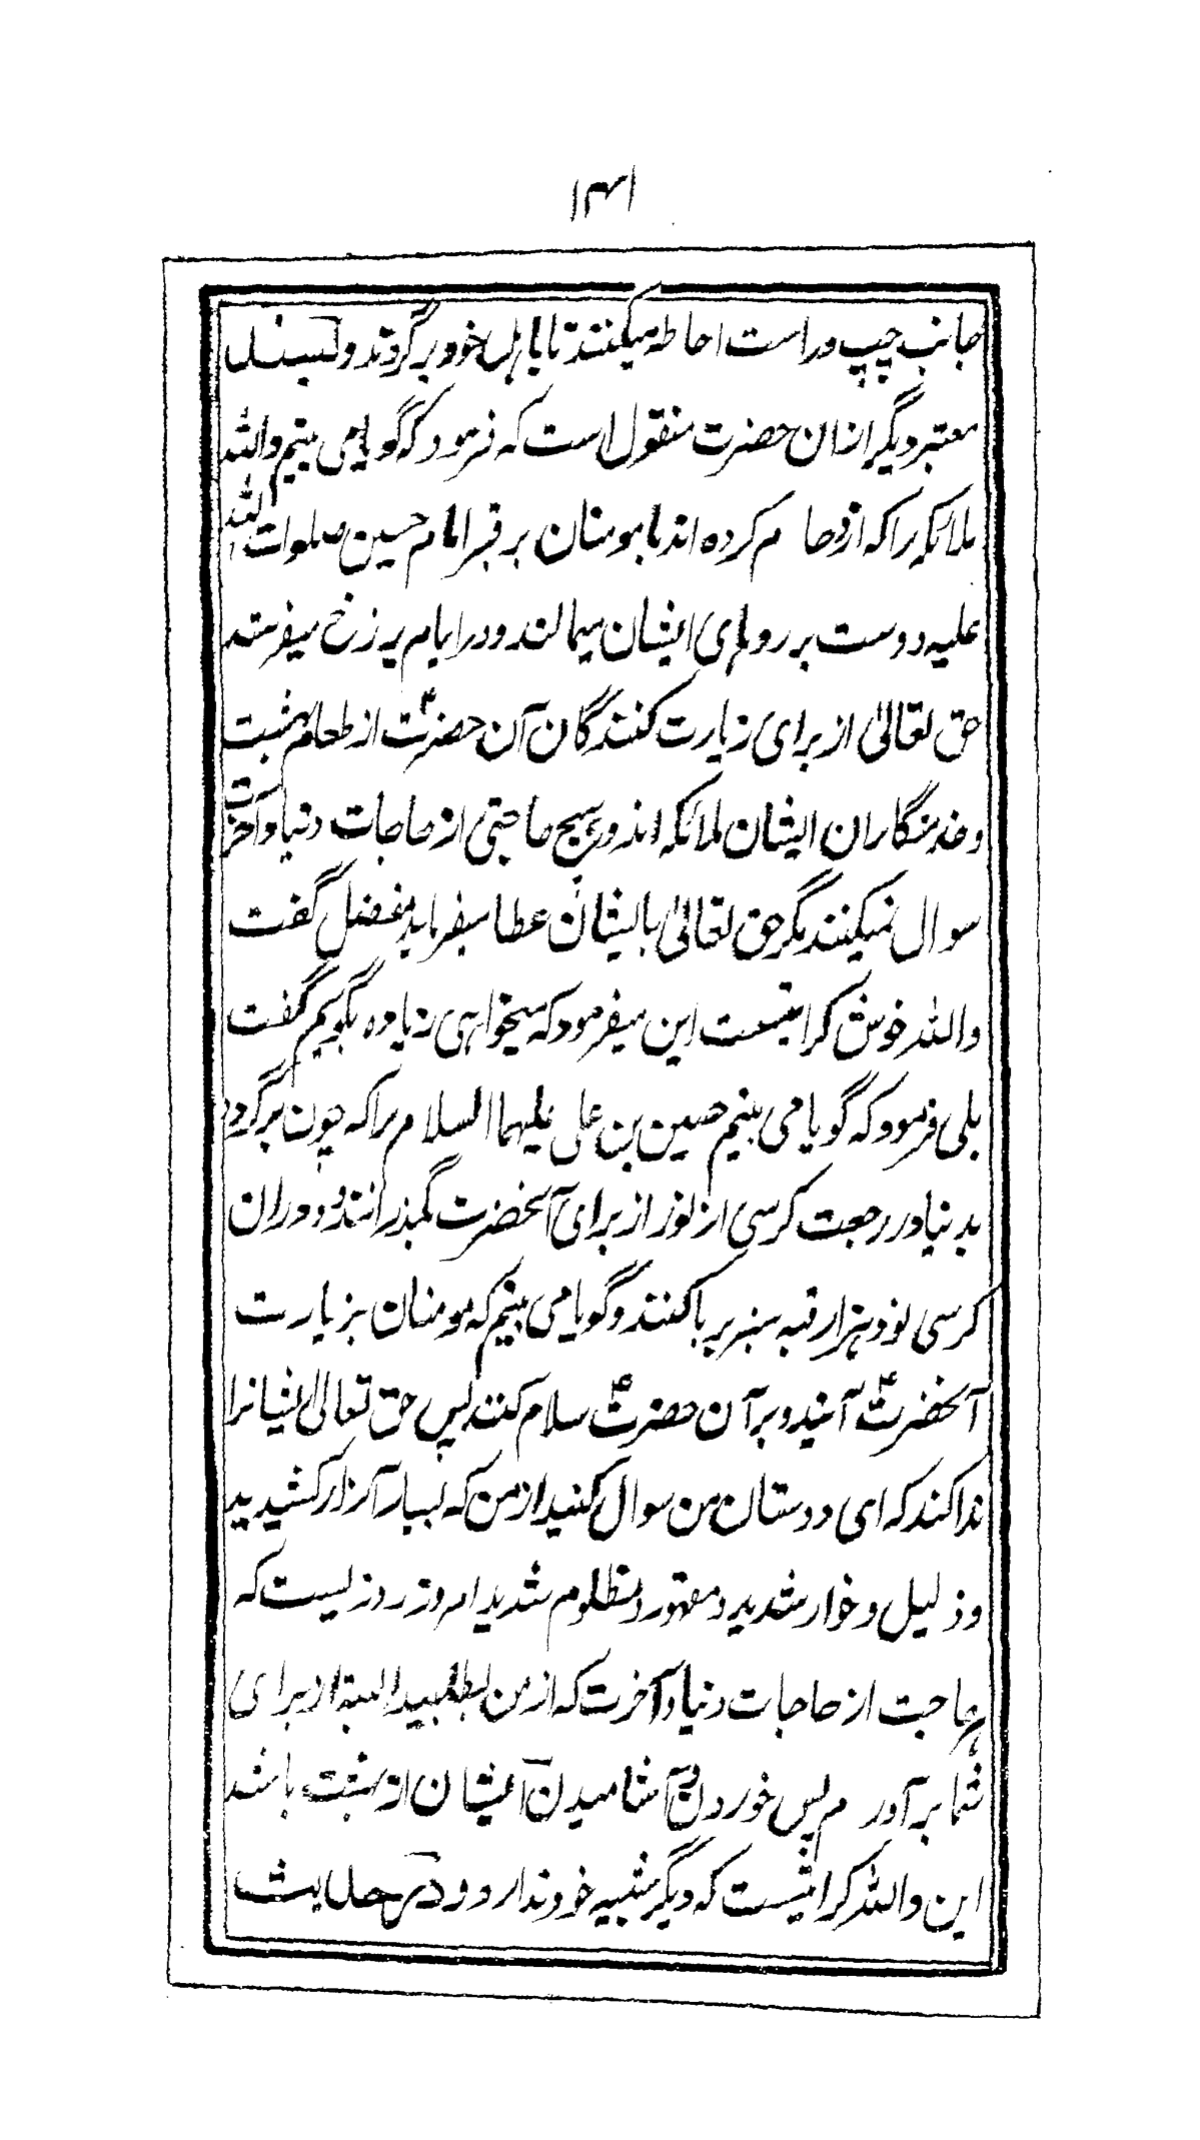 ۱۴۱
جانب چپ و راست احاطه میکنند تا باهل خود برگردند و بسند
معتبر دیگر ازان حضرت منقول است که فرمود که گویا می بینم والله
ملائکه را که ازدحام کرده اند با مومنان بر قبر امام حسین صلوات الله
علیه و دست بر روهای ایشان میمالند و در ایام برزخ میفرستد
حق تعالیٰ از برای زیارت کنندگان آن حضرتؑ از طعام بهشت
و خدمتگاران ایشان ملائکه اند و هیچ حاجتی از حاجات دنیا و آخرت
سوال نمیکنند مگر حق تعالیٰ بایشان عطا میفرماید مفضل گفت
والله خوش کرامتیست این میفرمود که میخواهی زیاده بگویم گفت
بلی فرمود که گویا می بینم حسین بن علی علیهما السلام را که چون برگردد
بدنیا در رجعت کرسی از نور از برای آنحضرت بگذرانند و دوران
کرسی نود هزار قبه سبز برپا کنند و گویا می بینم که مومنان بزیارت
آنحضرتؑ آیند و برآن حضرتؑ سلام کنند پس حق تعالیٰ ایشانرا
ندا کند که ای دوستان من سوال کنید از من که بسیار آزار کشیدید
و ذلیل و خوار شدید و مقهور و مظلوم شدید امروز روزیست که
هر حاجت از حاجات دنیا و آخرت که از من بطلبید البته از برای
شما برآورم پس خوردن و آشامیدن ایشان از بهشت باشد
این والله کرامتیست که دیگر شبیه خود ندارد و در حدیث